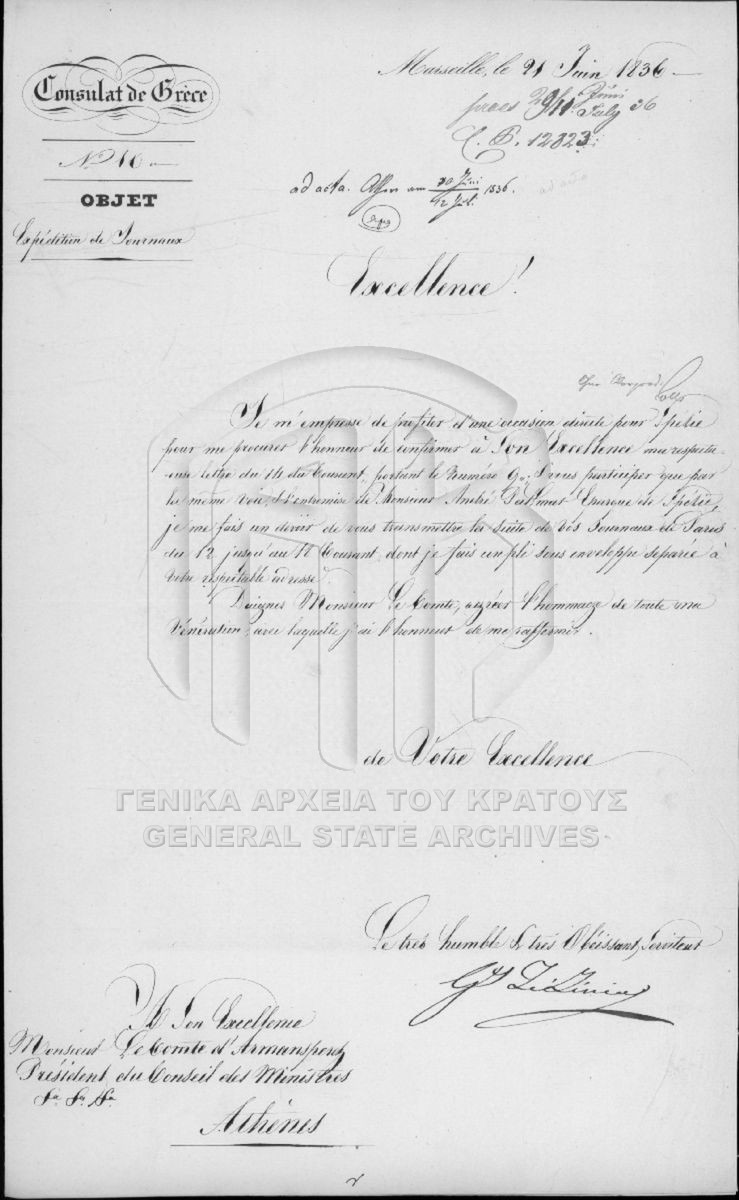 Consulat de Grèce
Nº 10
OBJET
Expédition de Journaux
Marseille, le 21 Juin 1836
praes 30/11 Juni July 36
C. P. 12323
ad acta. Athen am 30 Juni / 12 Jul. 1836.
ad acta
Excellence!
Je m'empresse de profiter d'une occasion directe pour
pour me procurer l'honneur de confirmer à Son Excellence ma respectu-
euse lettre du 14 du Courant, portant le Numéro 9. vous participer que par
la même voie, l'entremise de Monsieur André
je me fais un devoir de vous transmettre la suite de vos Journaux de Paris
du 12 jusqu'au 18 Courant, dont je fais un pli sous enveloppe separée à
Votre respectable adresse.
Daignez Monsieur Le Comte, agréer l'hommage de toute ma
Vénération, avec laquelle j'ai l'honneur de me raffermir.
de Votre Excellence
ΓΕΝΙΚΑ ΑΡΧΕΙΑ ΤΟΥ ΚΡΑΤΟΥΣ
GENERAL STATE ARCHIVES
Le très humble & très Obéissant Serviteur
A Son Excellence
Monsieur Le Comte d'Armansperg
Président du Conseil des Ministres
Athènes